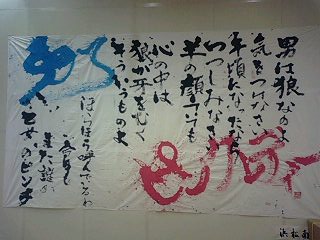 男は狼なのよ
気をつけなさい
年頃になったなら
つつしみなさい
羊の顔していても
心の中は
狼が牙をむく
そういうものよ
ピンクレディ
ほらほら呼んでいるわ
今日も
また誰か
乙女のピンチ
浜松南